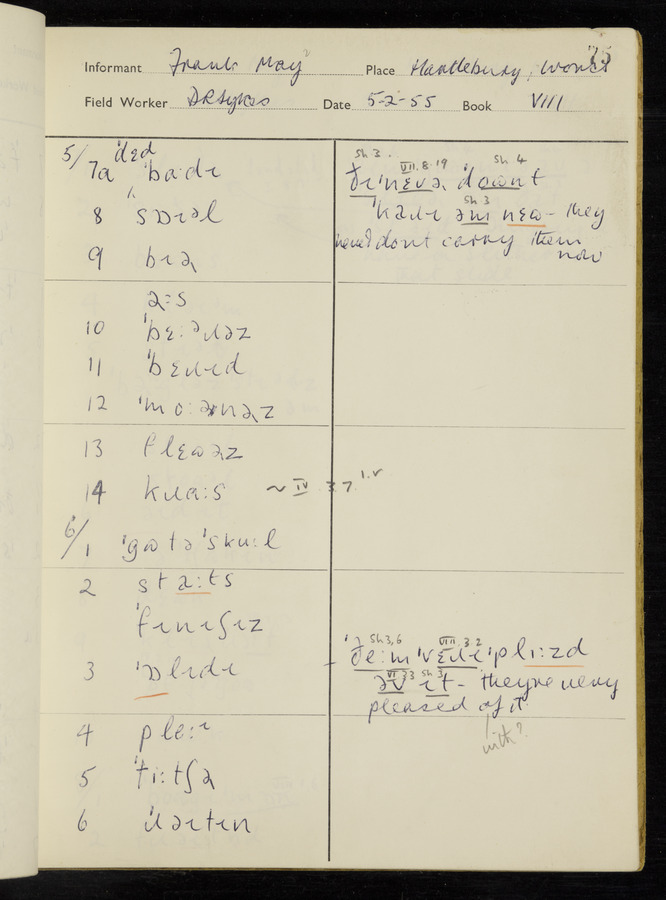 75
Informant Frank May Place Hartlebury, Worcs
Field Worker D R Sykes Date 5-2-55 Book VIII
5/ ˈɹɛd
7a ˈbaːdɪ
8 spɪəl
9 bɪə
əːs
10 ˈbɛːəɹəz
11 ˈbɛɹɪd
12 ˈmɔːənəz
13 flɛʊəz
14 kɹɑːs ~ IV 3.7 1.r
6/1 ˈgʊ tə ˈskuːl
2 staːts
ˈfɪnɪʃɪz
3 ˈɒlɪdɪ
4 pleːɪ
5 ˈtiːtʃə
6 ˈɹaɪtɪn
sh 3. VII.8.19 sh 4
ðɪ ˈnɛvə dəʊnt
sh 3
ˈkaɹɪ əm nɛʊ - they
never dont carry them
now
sh 3,6 VIII 3.2
ðeːm ˈvɛɹɪ ˈpliːzd
VI 3 sh 3
əv ɪt - they're very
pleased of it
with?